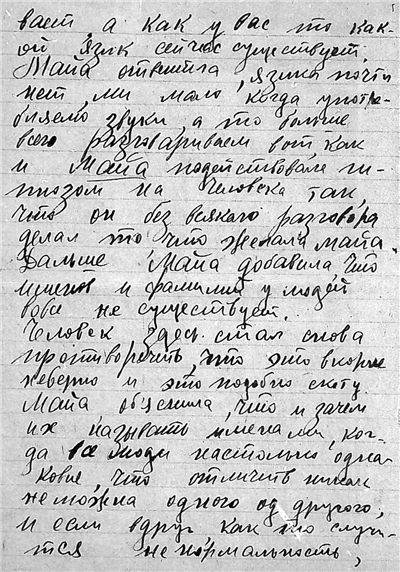 вает, а как у вас то как-
ой язик сейчас существует,
Майа ответила, язика почти
нет, ми мало, когда употре-
бляемо звуки, а то больше
всего разговариваем вот как
и Майа подействовала ги-
пнозом на человека так
что он без всякаго разговора
делал то что желала майа.
Дальше Майа добавила, что
именов и фамилий у людей
вовсе не существует.
Человек здесь стал снова
противоречить, что это вкорне
неверно и это подобно скоту
Майа обьяснила, что и зачем
их называть именами, ког-
да все люди настолько одна-
ковие, что отличить никак
неможна одного од другого,
и если вдруг как то случи-
тся ненормальность,